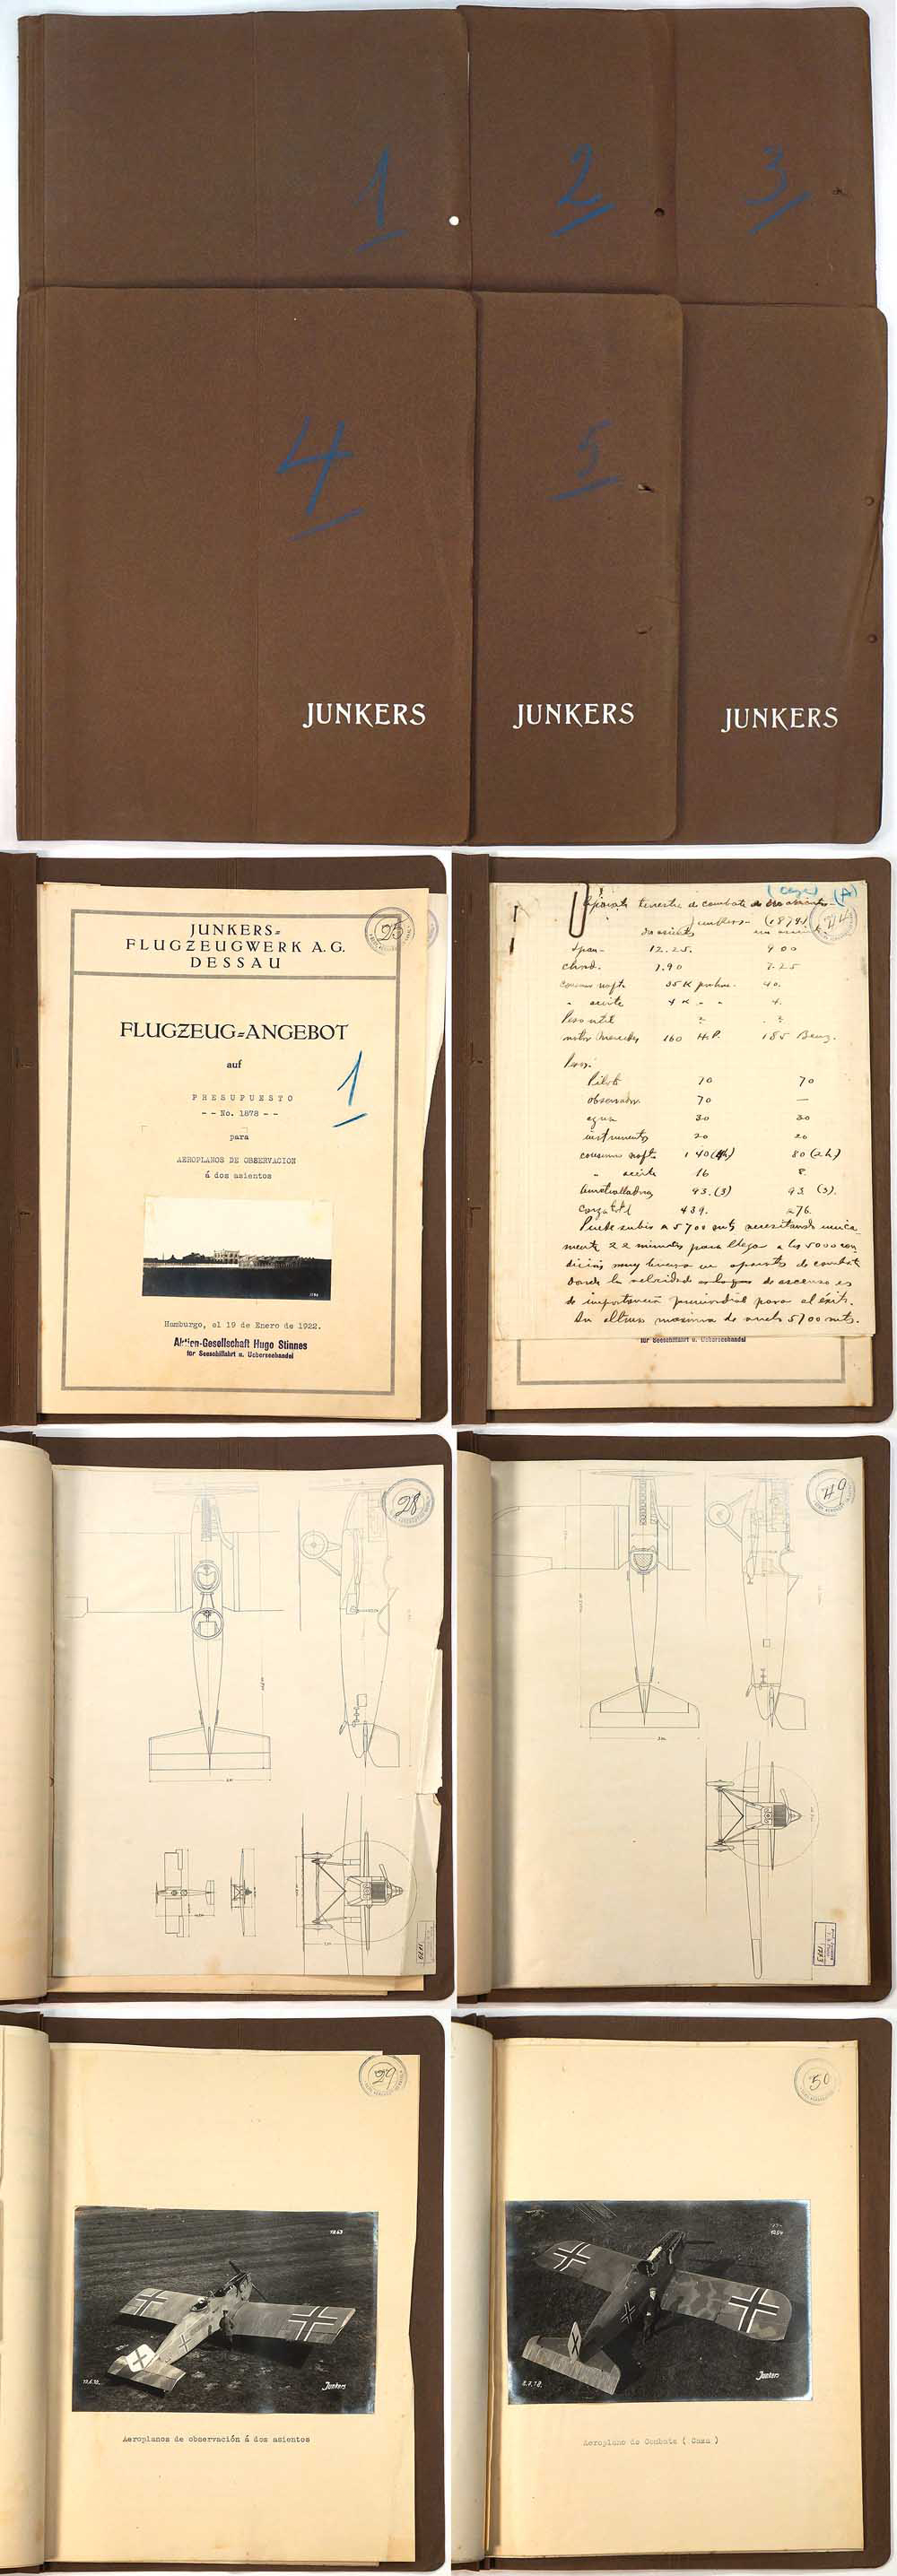 1
2
3
4
5
JUNKERS
JUNKERS
JUNKERS
JUNKERS=
FLUGZEUGWERK A.G.
DESSAU
25
FLUGZEUG=ANGEBOT
auf
1
PRESUPUESTO
- - No. 1878 - -
para
AEROPLANOS DE OBSERVACION
á dos asientos
Hamburgo, el 19 de Enero de 1922.
Aktien-Gesellschaft Hugo Stinnes
für Seeschiffahrt u. Ueberseehandel
(A)
Aparato terrestre de combate
Junkers- (1879)
dos asientos un asiento
Span- 12.25. 9 00
chord. 1.90 7.25
consumo nafta 35 K por hora. 40.
" aceite 4 K " " 4.
Peso util ? ?
motor Mercedes 160 H.P. 185 Benz.
Peso:
Piloto 70 70
observador 70 —
agua 30 30
instrumentos 20 20
consumo nafta 140 (4h) 80 (2h)
" aceite 16 8
Ametralladoras 93. (3) 93 (3).
Carga total 439. 276.
Puede subir a 5700 mts necesitando unica-
mente 22 minutos para llegar a los 5000 con
dicion muy buena en aparato de combate
donde la velocidad de ascenso es
de importancia primordial para el éxito.
Su altura maxima de vuelo 5700 mts.
für Seeschiffahrt u. Ueberseehandel
28
49
50
1263
Junkers
1264
Junkers
Aeroplanos de observación á dos asientos
Aeroplano de Combate ( Casa )